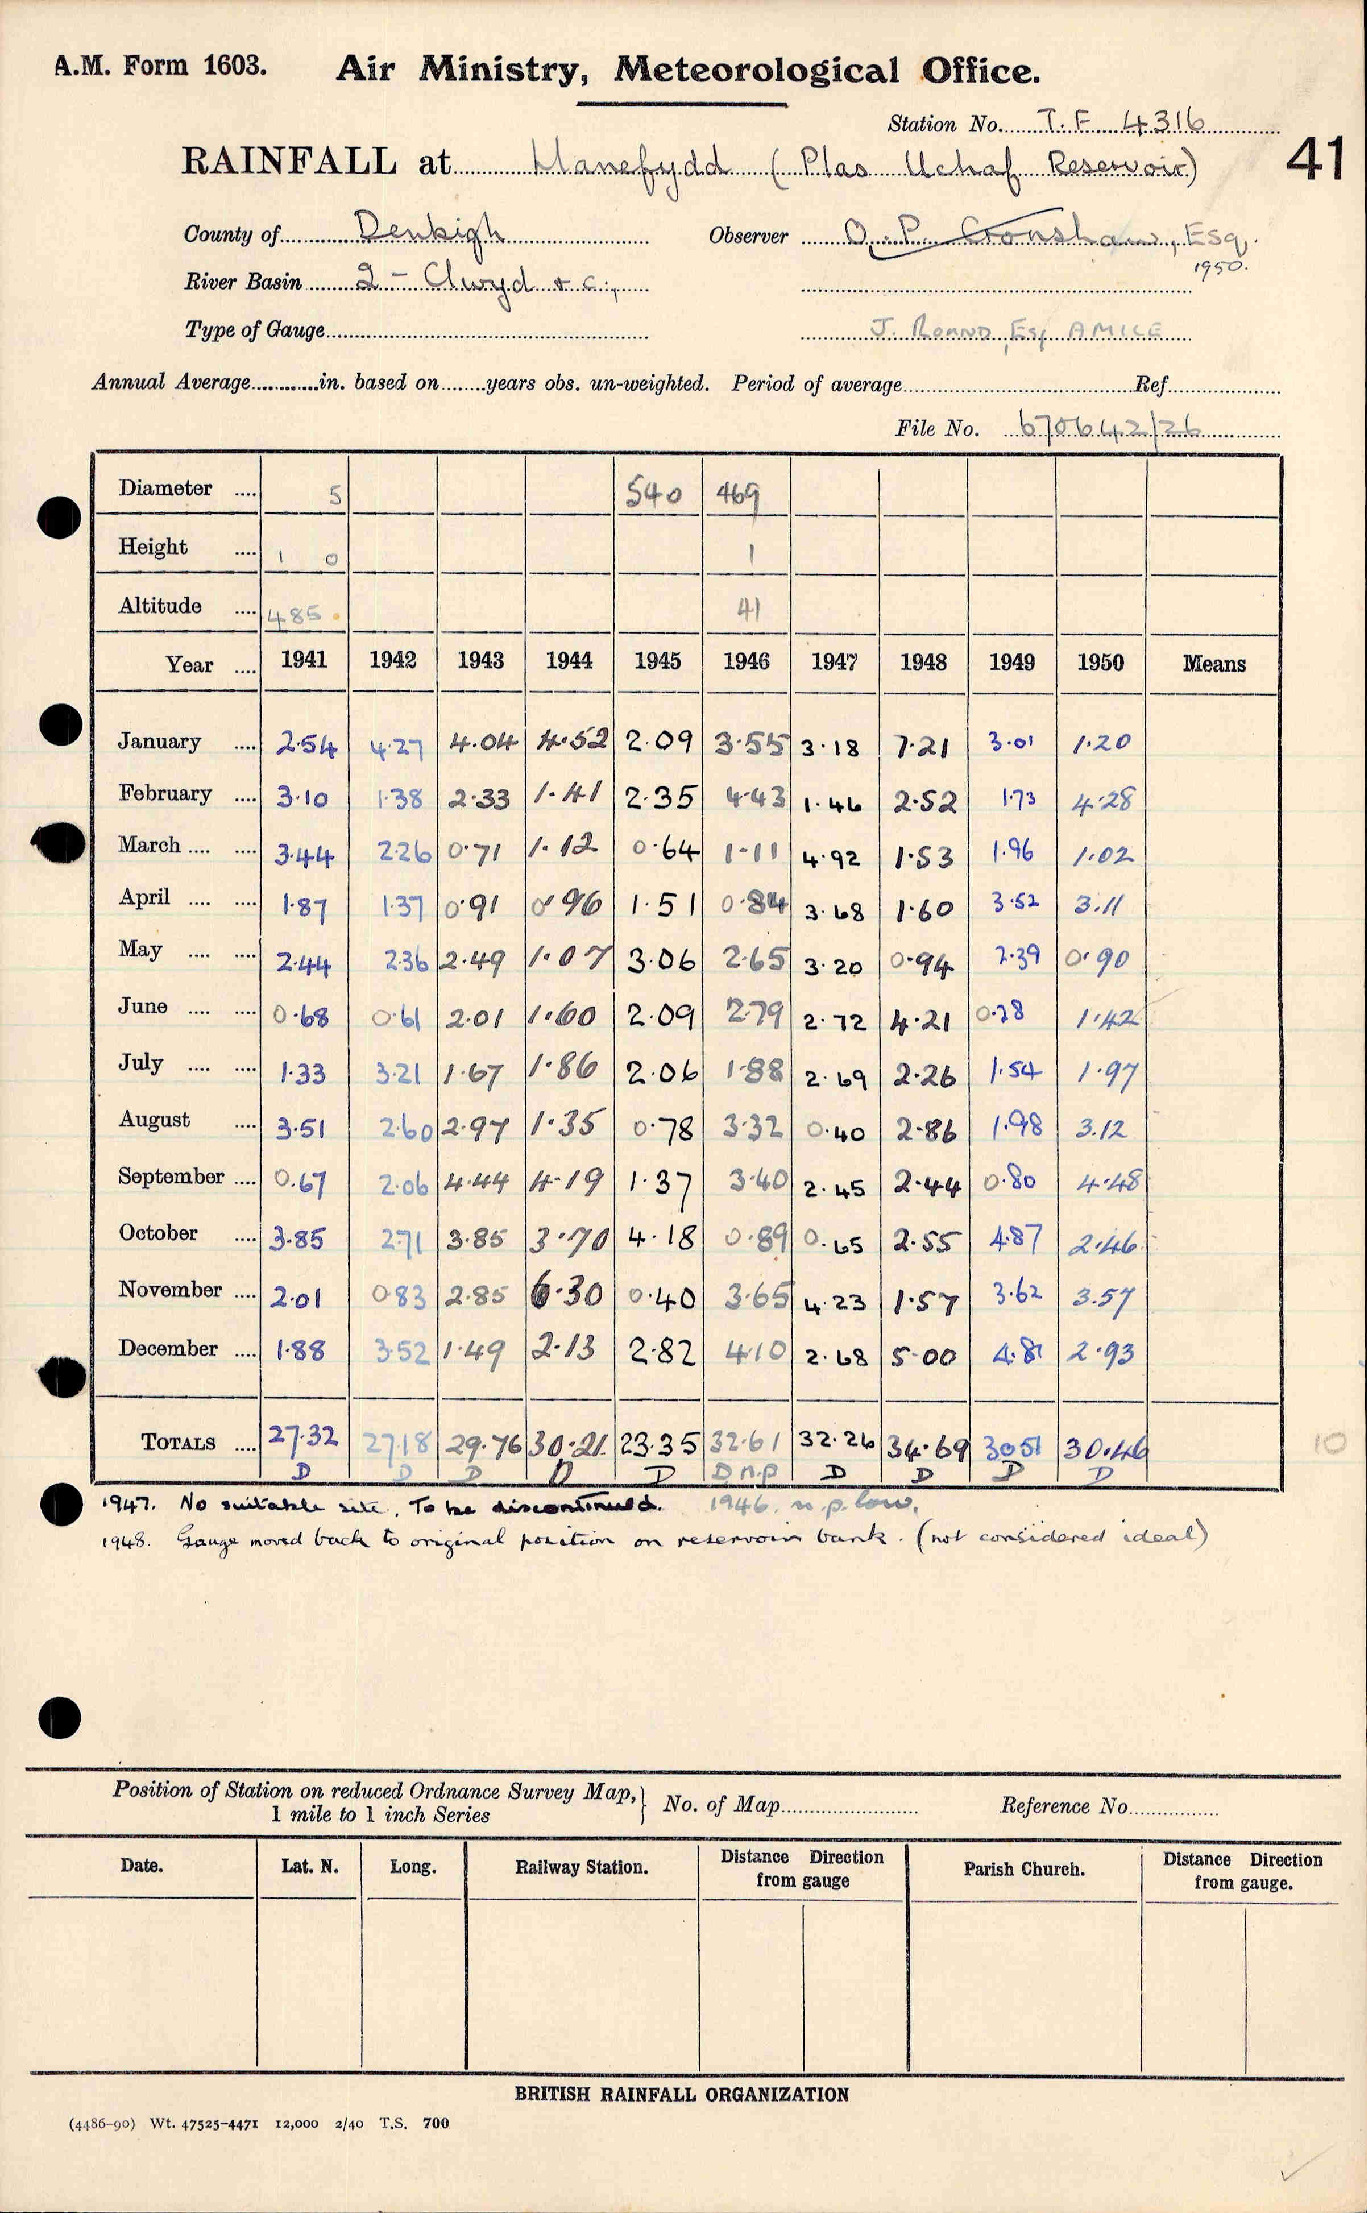 A.M. Form 1603. Air Ministry, Meteorological Office.
Station No. T.F 4316
41
RAINFALL at Llanefydd (Plas Uchaf Reservoir)
County of Denbigh Observer O. P. Cronshaw, Esq.
1950.
River Basin 2 - Clwyd & c.,
Type of Gauge J. , Esq AMICE
Annual Average in. based on years obs. un-weighted. Period of average Ref
File No. 670642/26
Diameter .... 5 540 469
Height .... 1 0 1
Altitude .... 485 41
Year .... 1941 1942 1943 1944 1945 1946 1947 1948 1949 1950 Means
January .... 2.54 4.27 4.04 4.52 2.09 3.55 3.18 7.21 3.01 1.20
February .... 3.10 1.38 2.33 1.41 2.35 4.43 1.46 2.52 1.73 4.28
March .... .... 3.44 2.26 0.71 1.12 0.64 1.11 4.92 1.53 1.96 1.02
April .... .... 1.87 1.37 0.91 0.96 1.51 0.84 3.68 1.60 3.52 3.11
May .... .... 2.44 2.36 2.49 1.07 3.06 2.65 3.20 0.94 2.39 0.90
June .... .... 0.68 0.61 2.01 1.60 2.09 2.79 2.72 4.21 0.28 1.42
July .... .... 1.33 3.21 1.67 1.86 2.06 1.88 2.69 2.26 1.54 1.97
August .... 3.51 2.60 2.97 1.35 0.78 3.32 0.40 2.86 1.98 3.12
September .... 0.67 2.06 4.44 4.19 1.37 3.40 2.45 2.44 0.80 4.48
October .... 3.85 2.71 3.85 3.70 4.18 0.89 0.65 2.55 4.87 2.46
November .... 2.01 0.83 2.85 6.30 0.40 3.65 4.23 1.57 3.62 3.57
December .... 1.88 3.52 1.49 2.13 2.82 4.10 2.68 5.00 4.81 2.93
TOTALS .... 27.32 27.18 29.76 30.21 23.35 32.61 32.26 34.69 30.51 30.46 10
D D D D D D n.p D D D D
1947. No suitable site. To be discontinued. 1946. n.p. low.
1948. Gauge moved back to original position on reservoir bank. (not considered ideal)
Position of Station on reduced Ordnance Survey Map,
1 mile to 1 inch Series } No. of Map Reference No.
Date. Lat. N. Long. Railway Station. Distance Direction from gauge Parish Church. Distance Direction from gauge.
BRITISH RAINFALL ORGANIZATION
(4486-90) Wt. 47525-4471 12,000 2/40 T.S. 700